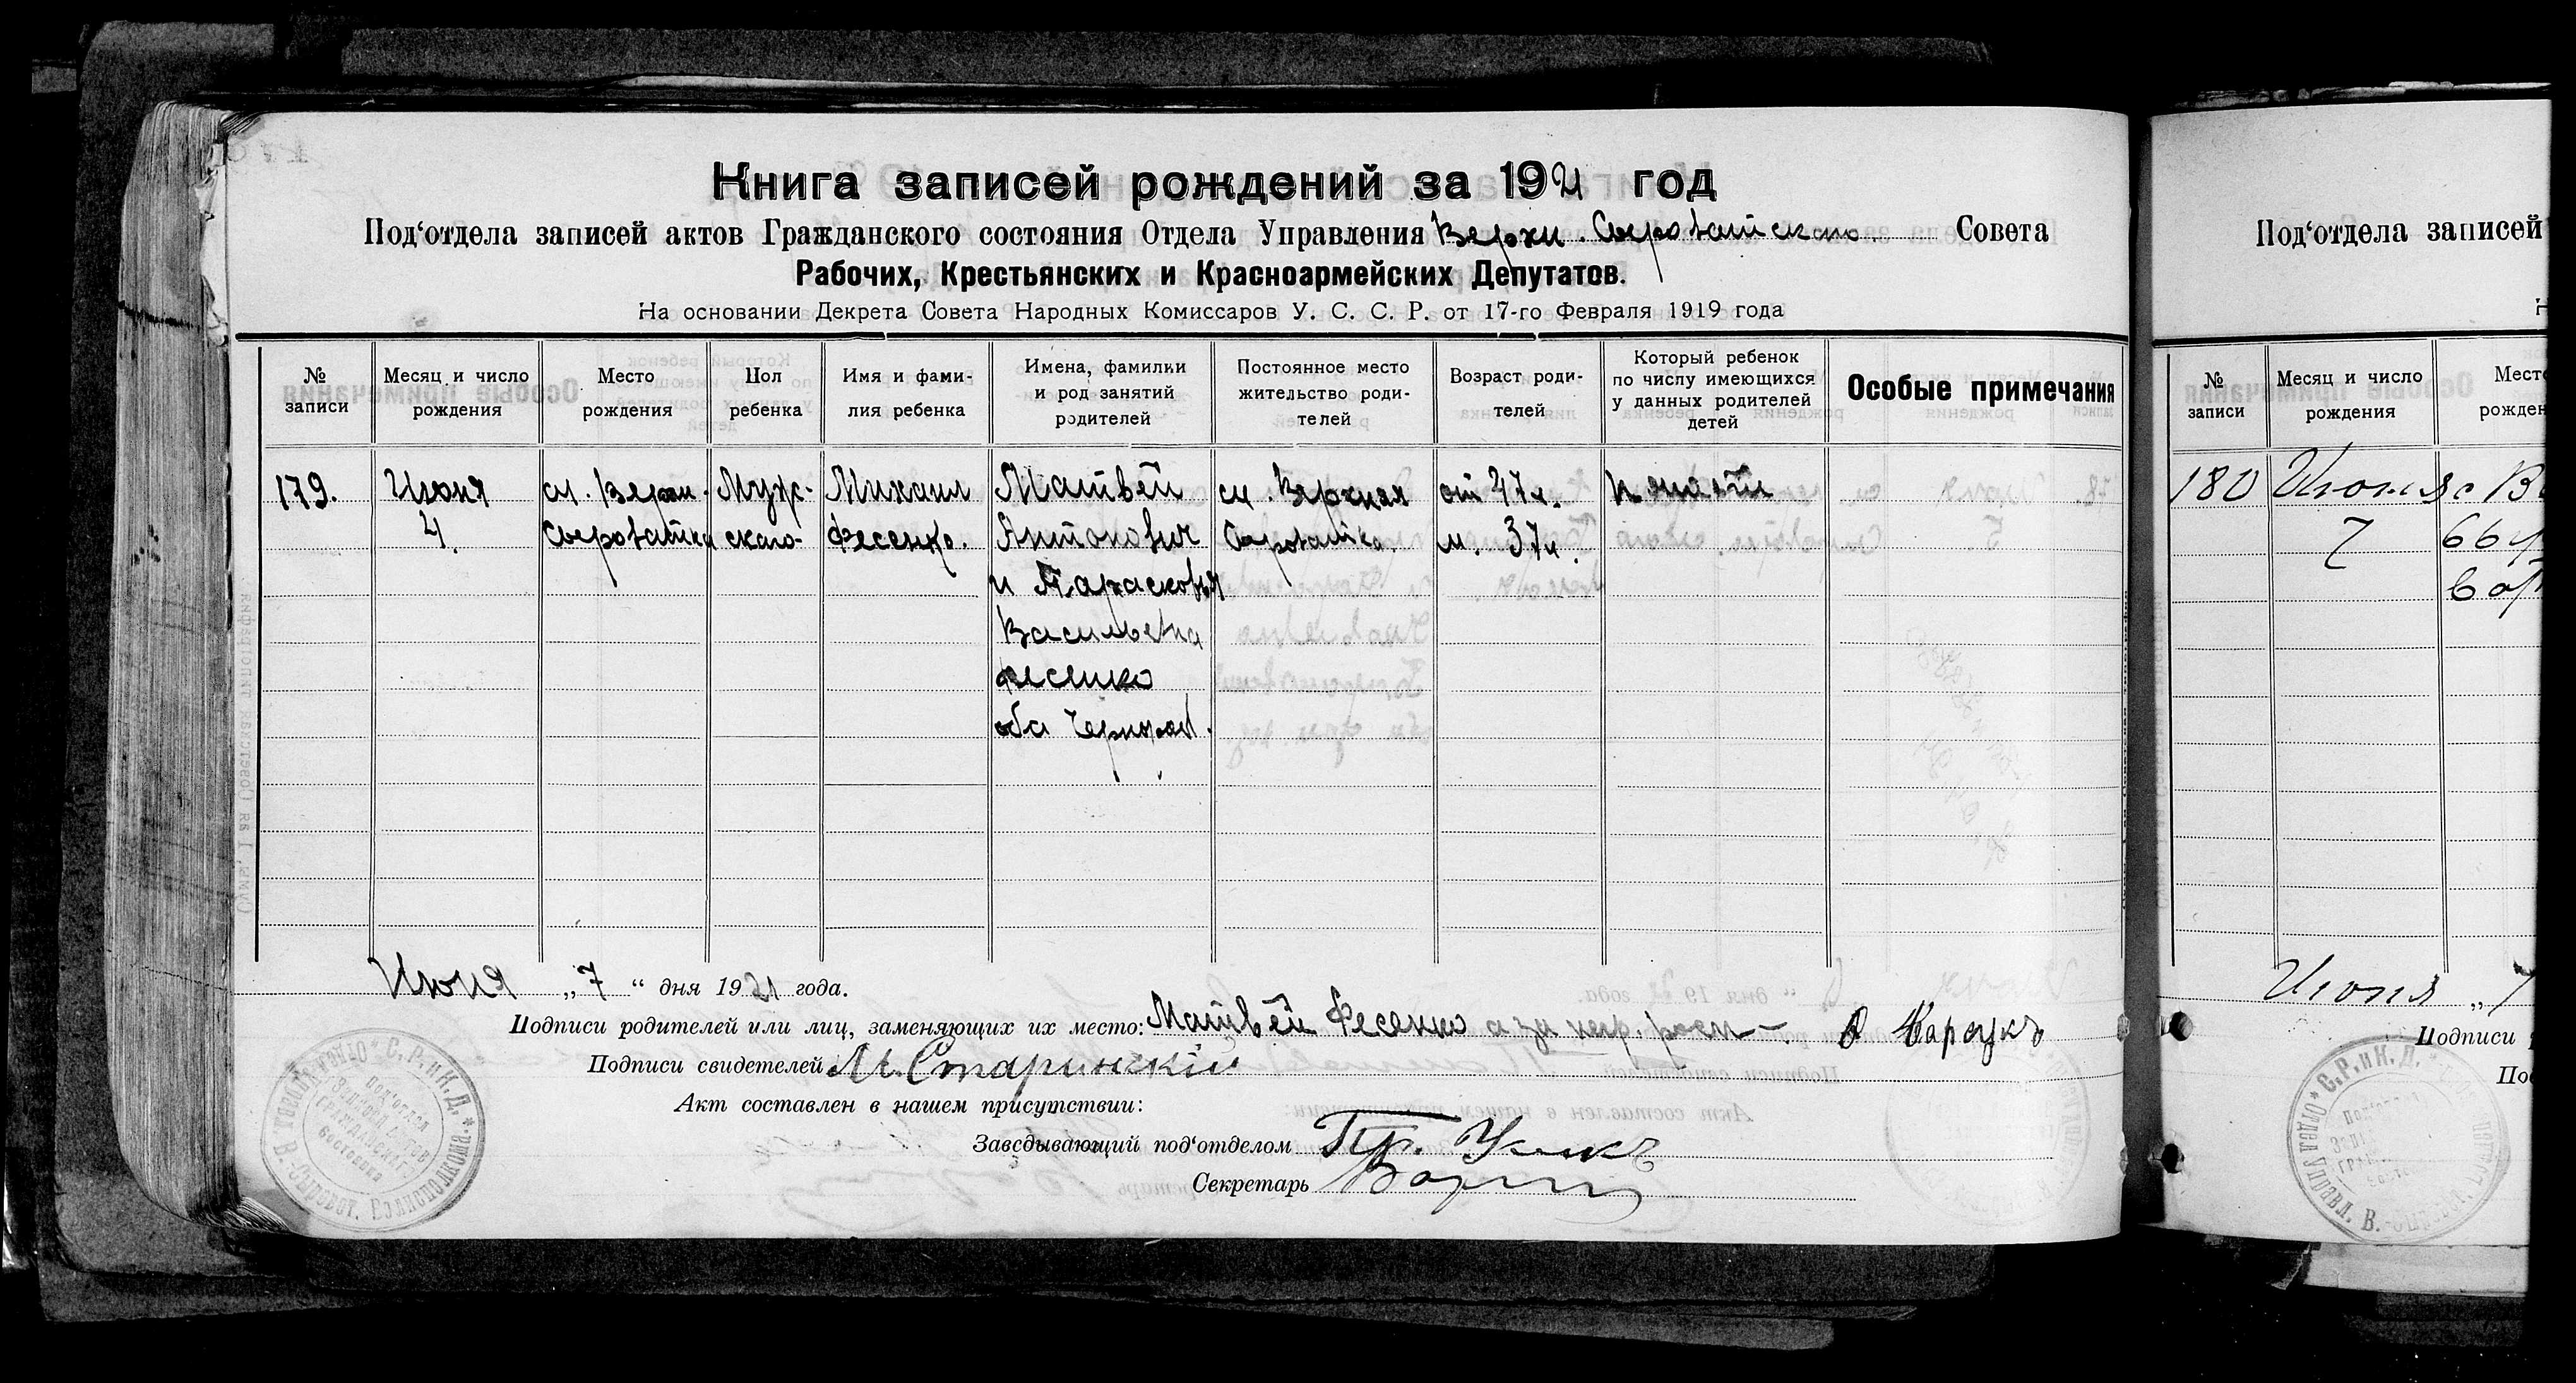 Книга записей рождений за 1921 год
Под‘отдела записей актов Гражданского состояния Отдела Управления Верхн. Сыроватского Совета
Рабочих, Крестьянских и Красноармейских Депутатов.
На основании Декрета Совета Народных Комиссаров У. С. С. Р. от 17-го Февраля 1919 года
№ записи
Месяц и число рождения
Место рождения
Пол ребенка
Имя и фами-
лия ребенка
Имена, фамилии
и род занятий
родителей
Постоянное место
жительство роди-
телей
Возраст роди-
телей
Который ребенок
по числу имеющихся
у данных родителей
детей
Особые примечания
179.
Июня
4.
сл. Верхн.
Сыроватка
Муж-
ского
Михаил
Фесенко.
Матвей
Антонович
и Парасковья
Васильевна
Фесенко
оба Чернораб.
сл. Верхняя
Сыроватка.
от 47 л.
м. 37 л.
Июня „ 7 “ дня 1921 года.
Подписи родителей или лиц, заменяющих их место: Матвей Фесенко а за негр. росп-
Подписи свидетелей М. Старинский
Акт составлен в нашем присутствии:
Заведывающий под‘отделом
Секретарь
Под‘отдела записей
№ записи
Месяц и число рождения
Место
рожден
180
Июня
7
с В
Июня „ 7
Подписи
По